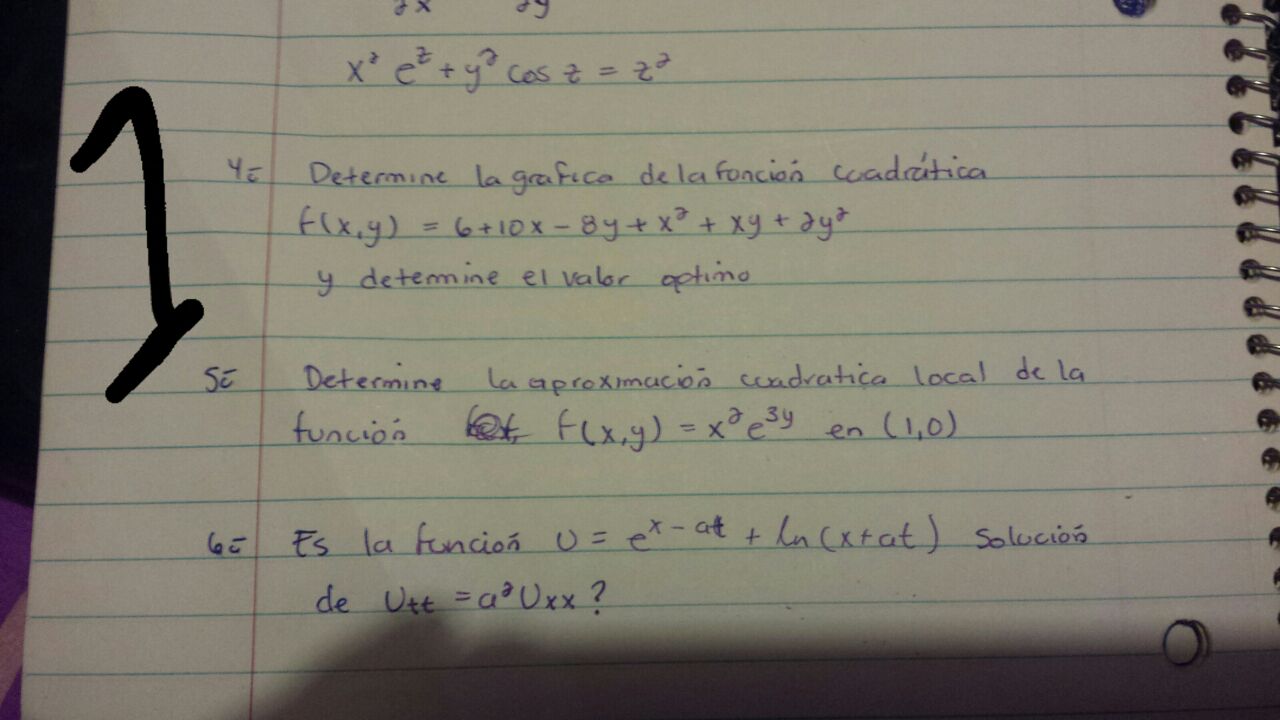 ∂x ∂y
x² e^z + y² cos z = z²
4= Determine la grafica de la función cuadrática
f(x,y) = 6+10x - 8y + x² + xy + 2y²
y determine el valor optimo
5= Determine la aproximación cuadratica local de la
función f(x,y) = x² e^3y en (1,0)
6= Es la función U = e^x-at + ln(x+at) solución
de Utt = a² Uxx?